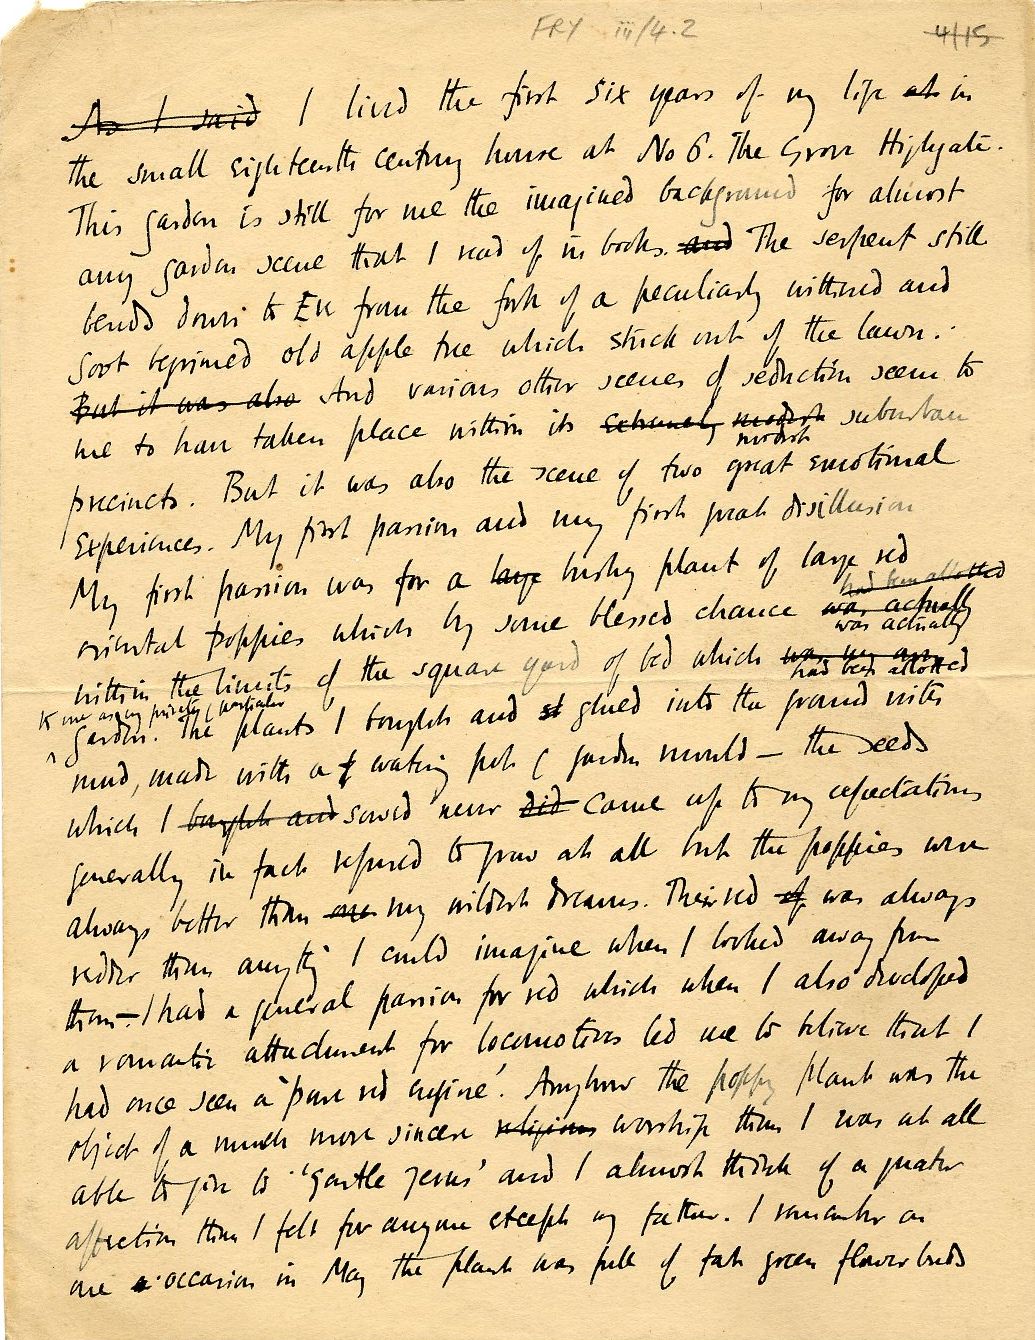 FRY iii/4.2
4/15
As I said I lived the first six years of my life at in
the small eighteenth century house at No 6. The Grove Highgate.
This garden is still for me the imagined background for almost
any garden scene that I read of in books. and The serpent still
bends down to Eve from the fork of a peculiarly withered and
soot begrimed old apple tree which stuck out of the lawn.
But it was also And various other scenes of seduction seem to
me to have taken place within its extremely modest suburban
modest
precincts. But it was also the scene of two great emotional
experiences. My first passion and my first great disillusion
My first passion was for a large bushy plant of large red
had been allotted
oriental poppies which by some blessed chance was actually
was actually
within the limits of the square yard of bed which was my own
had been allotted
to me as my private & particular
garden. The plants I bought and st glued into the ground with
mud, made with a watering pot & garden mould – the seeds
which I bought and sowed never did come up to my expectations
generally in fact refused to grow at all but the poppies were
always better than my wildest dreams. Their red of was always
redder than anything I could imagine when I looked away from
them – I had a general passion for red which when I also developed
a romantic attachment for locomotives led me to believe that I
had once seen a 'pure red engine'. Anyhow the poppy plant was the
object of a much more sincere religious worship than I was at all
able to give to 'gentle Jesus' and I almost think of a greater
affection than I felt for anyone except my father. I remember on
one occasion in May the plant was full of fat green flower buds